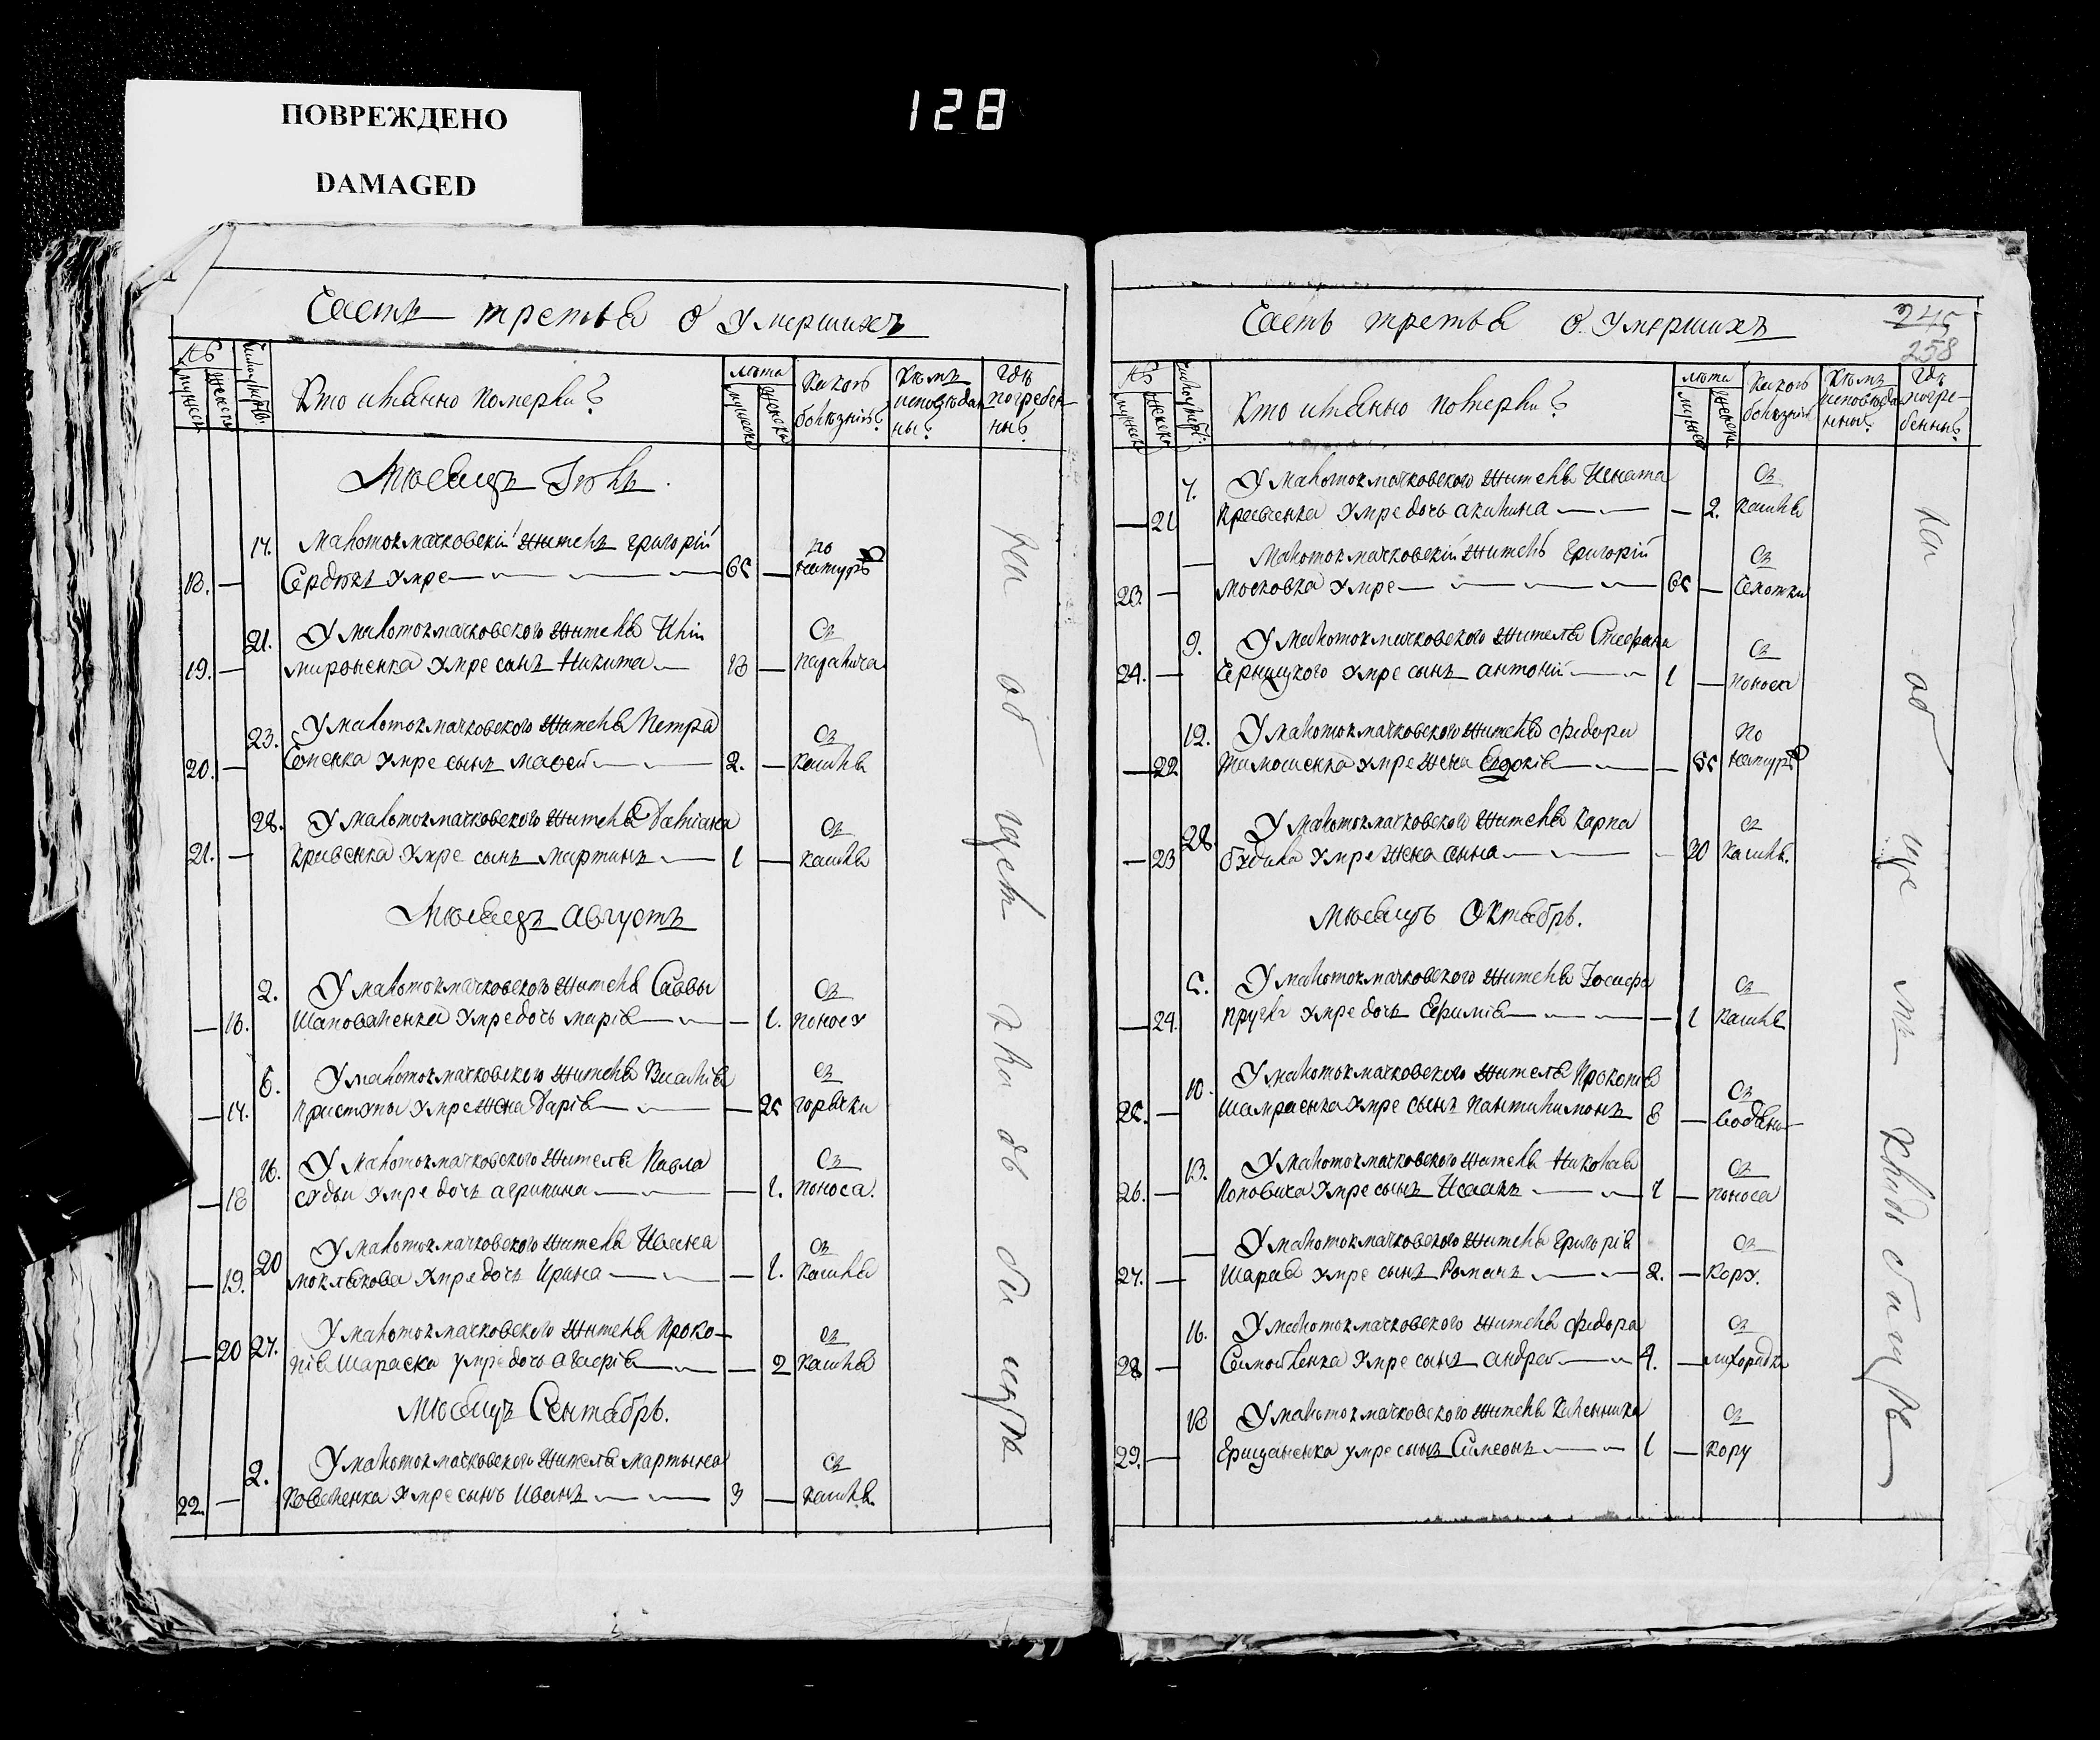 ПОВРЕЖДЕНО
DAMAGED
128
Часть третья о умершихъ
Кто имянно померли?
лѣта
Какою болѣзнію?
Кѣмъ исповѣданны?
Гдѣ погребенны?
Мѣсяцъ Іюль.
17. Малотокмачковскій житель григорій
18. — Сердюкъ умре — 65 — по натурѣ
21. У малотокмачковского жителя
19. — мироненка умре сынъ Никита — 18 — Съ паралича
23. У малотокмачковского жителя Петра
20. — умре сынъ — 2. — Съ кашля
28. У малотокмачковского жителя Даміана
21. — Кривенка умре сынъ мартинъ — 1 — Съ кашля
Мѣсяцъ августъ
2. У малотокмачковского жителя Саввы
— 16. Шаповаленка умре дочь марія — — 1. Съ поносу
6. У малотокмачковского жителя Василія
— 17. Приступы умре жена Дарія — — 25 Съ горячки
16. У малотокмачковского жителя Павла
— 18 судьи умре дочь агрипина — — 1. Съ поноса.
20 У малотокмачковского жителя Ивана
— 19. моклякова умре дочь Ирина — — 1. Съ кашля
27. У малотокмачковского жителя Проко-
— 20 пія Шараека умре дочь — — 2 Съ кашля
Мѣсяцъ Сентябрь.
2. У малотокмачковского жителя мартына
22. — Коваленка умре сынъ Иванъ — 3 — Съ кашля.
На об щем кла дб би щѣ
Часть третья о умершихъ
245
258
Кто имянно померли?
лѣта
Какою болѣзнію
Кѣмъ исповѣданны?
Гдѣ погребенны?
7. У малотокмачковского жителя Игната
— 21 Кравченка умре дочь акилина — — 2. Съ кашля
— Малотокмачковскій житель Григорій
23. — московка умре — 65 — Съ сухотки
9. У малотокмачковского жителя Стефана
24. — Черницкого умре сынъ антоній — 1 — Съ поноса
12. У малотокмачковского жителя федора
— 22 Тимошенка умре жена Евдокія — — 55 По натурѣ
28. У малотокмачковского жителя Карпа
— 23 будила умре жена анна — — 30 Съ кашля.
Мѣсяцъ Октябрь.
5. У малотокмачковского жителя Іосифа
— 24. умре дочь Ефимія — — 1 Съ кашля
10. У малотокмачковского жителя Прокопія
25. — Шамраенка умре сынъ Пантилимонъ 8 — Съ
13. У малотокмачковского жителя Николая
26. — Поповича умре сынъ Исаакъ — 1 — Съ поноса
— У малотокмачковского жителя Григорія
27. — Шарая умре сынъ Романъ — 2. — Съ кору.
16. У малотокмачковского жителя федора
28 — Самойленка умре сынъ андрей — 4. — Съ лихорадки
18 У малотокмачковского жителя Калинника
29. — Ерищаненка умре сынъ Симеонъ — 1 — Съ кору
На об ще мъ кладбищѣ